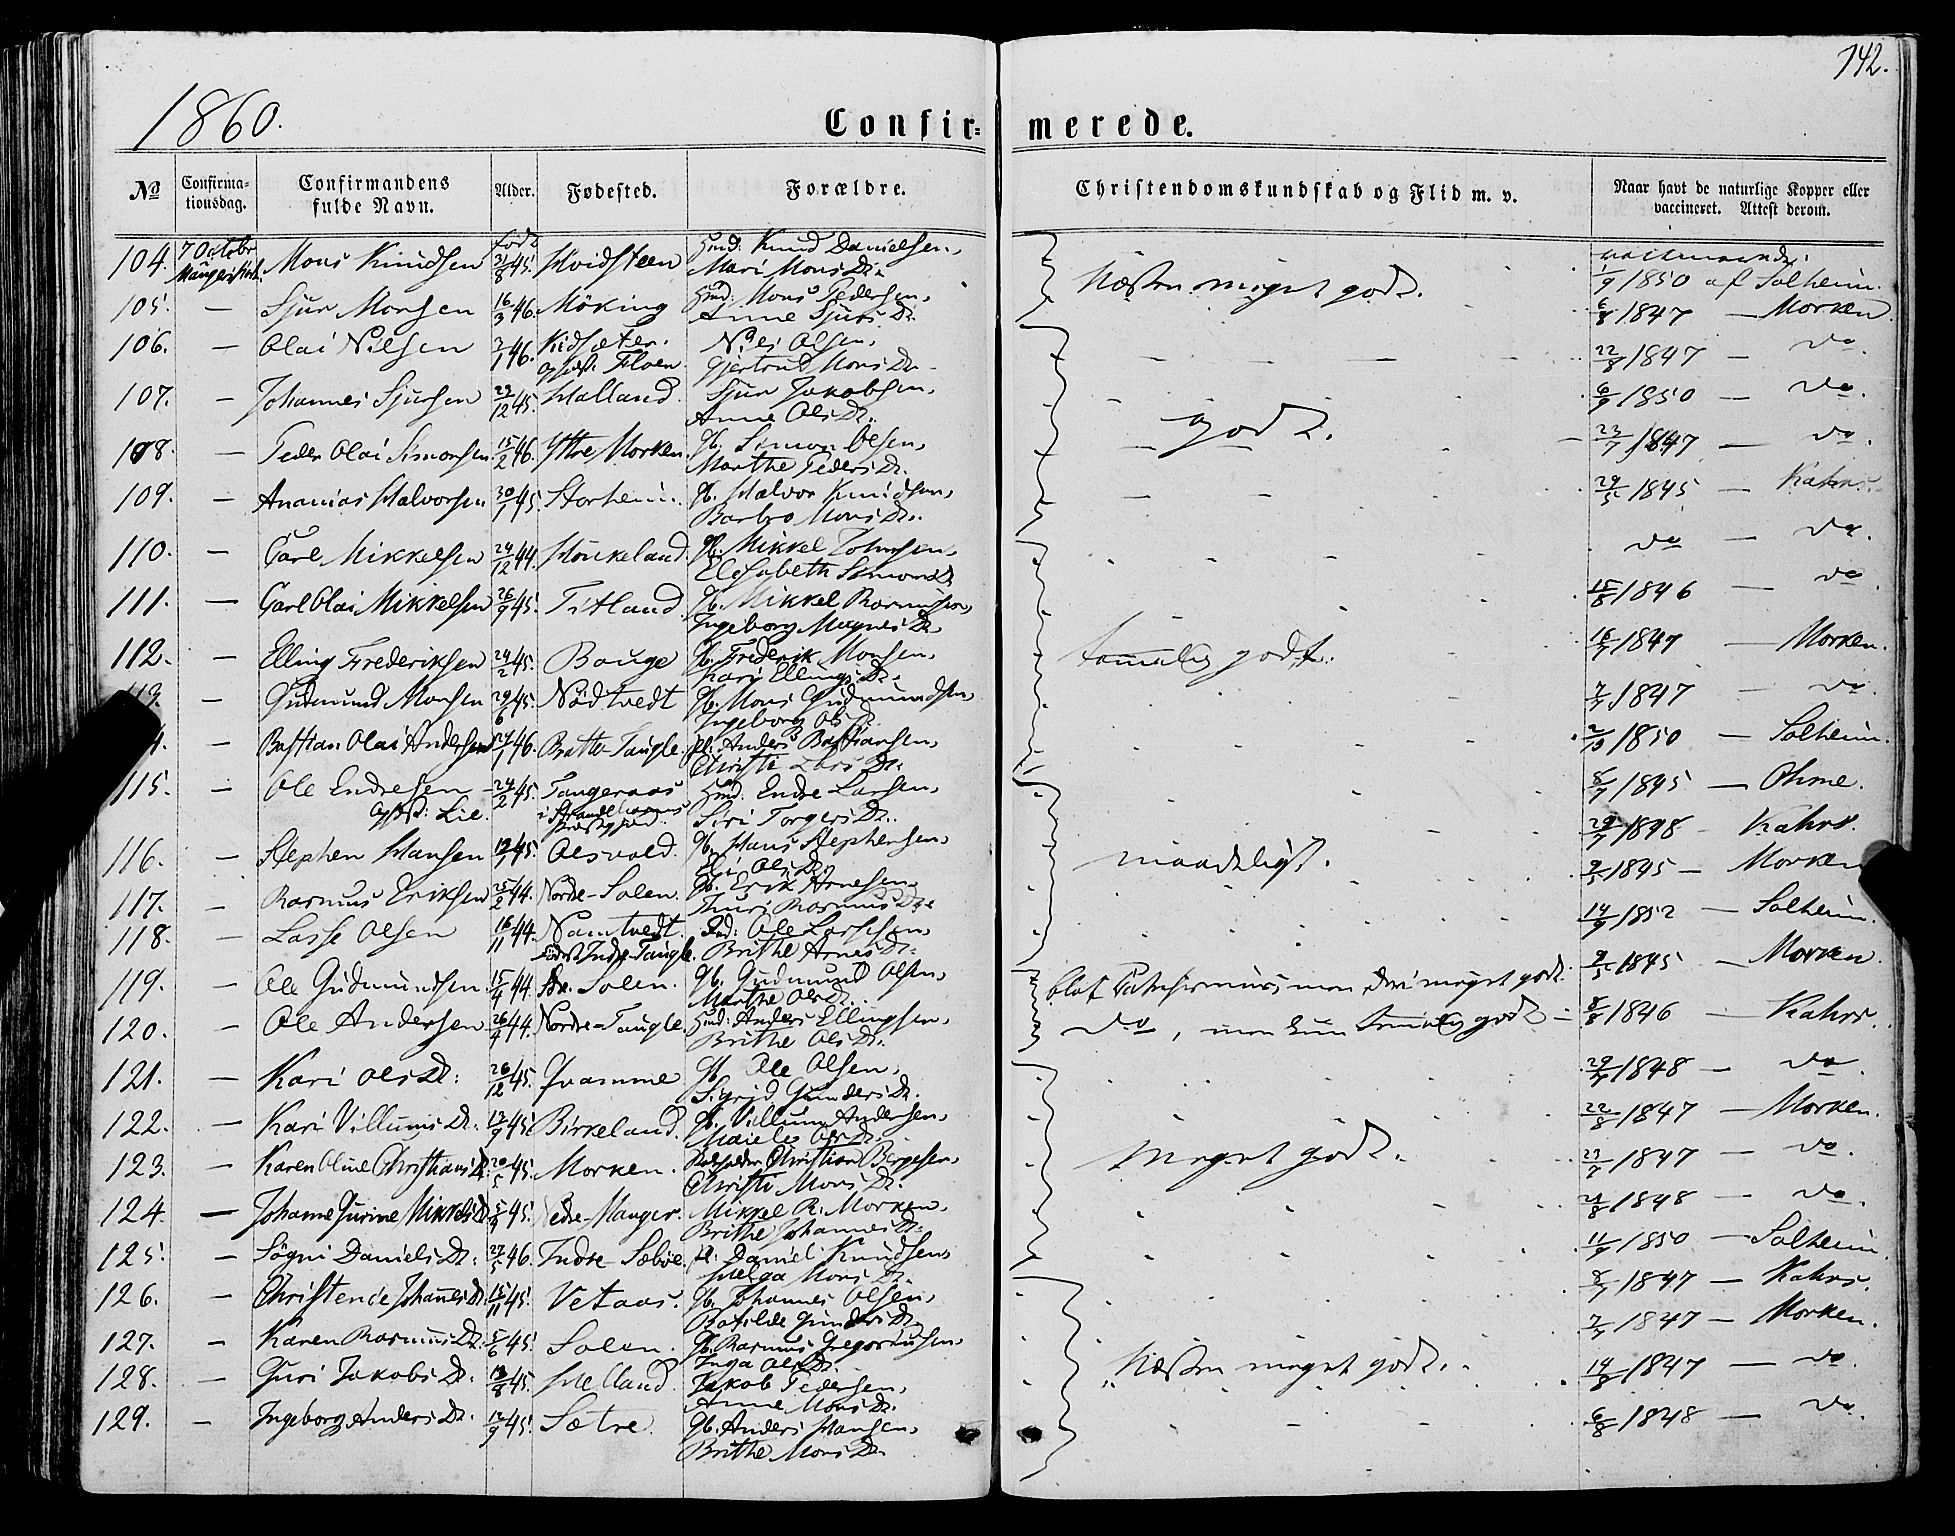 142.
1860.
Confir= merede.
No
Confirma-
tionsdag.
Confirmandens
fulde Navn.
Alder.
Fødested.
Forældre.
Christendomskundskab og Flid m. v.
Naar havt de naturlige Kopper eller
vaccineret. Attest derom.
104. 7 Octobr Mons Knudsen født 31/8 45. Hvidsteen Hmd: Knud Danielsen, Mari Mons Dr. 1/9 1850 af Solheim.
Næsten meget godt.
105. — Sjur Monsen 16/3 46. Möking Hmd: Mons Pedersen, Anne Sjurs Dr. 6/8 1847 — Morken.
106. — Olai Nilsen 2/1 46. Kidsæter. opfost. Floen Nils Olsen, Gjertrud Mons Dr. 22/8 1847 — do.
107. — Johannes Sjursen 29/12 45. Halland. Sjur Jakobsen, Anne Ols Dr. 6/9 1850 — do.
godt.
108. — Peder Olai Simonsen 15/2 46. Ytre Morken. Gb. Simon Olsen, Marthe Peders Dr. 23/7 1847 — do.
109. — Ananias Halvorsen 30/1 45. Storheim. Gb. Halvor Knudsen, Barbro Mons Dr. 29/5 1845 — Kahrs.
110. — Carl Mikkelsen 24/12 44. Houkeland. Gb. Mikkel Johnsen, Elisabeth Simons Dr do — do.
111. — Carl Olai Mikkelsen 26/9 45. Titland. Gb. Mikkel Rasmussen, Ingeborg Magnes Dr. 15/8 1846 — do.
112. — Elling Frederiksen 24/2 45. Bouge Gb. Frederik Monsen, Kari Ellings Dr. 16/7 1847 — Morken.
temmelig godt.
113. — Gudmund Monsen 29/6 45. Nödtvedt Gb. Mons Gudmundsen, Ingeborg Ols Dr. 7/7 1847 — do.
— Bastian Olai Andersen 27/1 46. Bratte-Taugle. pl. Anders Bastiansen, Christi Lars Dr. 2/10 1850 — Solheim.
115. — Ole Endresen opfød: Lie. 24/2 45. Tangeraas i Hmd. Endre Larsen, Siri Torgers Dr. 8/7 1845 — Ohme.
116. — Stephen Hansen 19/1 45. Olsvold. Gb. Hans Stephensen, Ols Dr. 29/7 1848 — Kahrs.
maadeligt.
117. — Rasmus Eriksen 25/2 44. Nordre-Solen. Gb. Erik Arnesen, Thuri Rasmus Dr. 9/5 1845 — Morken
118. — Lasse Olsen 16/11 44. Namtvedt. født Indre-Taugle. Ind: Ole Larssen, Brithe Arnes Dr. 14/9 1852 — Solheim.
119. — Ole Gudmundsen. 15/4 44. Solen. Gb. Gudmund Olsen, Marthe Ols Dr. 9/5 1845 — Morken.
blot men deri meget godt.
120. — Ole Andersen 26/4 44. Nordre-Taugle. Hmd: Anders Ellingsen, Brithe Ols Dr. 8/8 1846 — Kahrs.
do, men kun temmelig godt —
121. — Kari Ols Dr: 26/12 45. Qvamme Gb. Ole Olsen, Sigrid Gunders Dr. 29/7 1848 — do
122. — Kari Villums Dr. 13/9 45. Birkeland. Gb. Villum Andersen, Ols Dr. 22/8 1847 — Morken.
123. — Karen Oline Christians Dr 20/5 45. Morken. Christian Børgesen, Christi Mons Dr. 23/7 1847 — do.
Meget godt.
124. — Johanne Gurine Mikkels Dr 5/4 45. Nedre-Manger. Mikkel R. Morken, Brithe Johannes Dr. 21/8 1848 — do.
125. — Sögni Daniels Dr: 27/5 46. Indre-Sæbøe. pl. Daniel Knudsen, Helga Mons Dr. 11/9 1850 — Solheim.
126. — Christence Johannes Dr. 15/11 45. Vetaas. Gb. Johannes Olsen, Botilde Gunders Dr. 8/7 1847 — Kahrs.
127. — Karen Rasmus Dr. 5/6 45. Solen. Gb. Rasmus Gregoriussen, Inga Ols Dr. 7/7 1847 — Morken.
128. — Guri Jakobs Dr. 13/8 45. Helland. Jakob Pedersen, Anne Mons Dr. 14/8 1847 — do.
Næsten meget godt.
129. — Ingeborg Anders Dr. 12/9 45. Sætre. Gb. Anders Hansen, Brithe Mons Dr. 6/8 1848 — do.